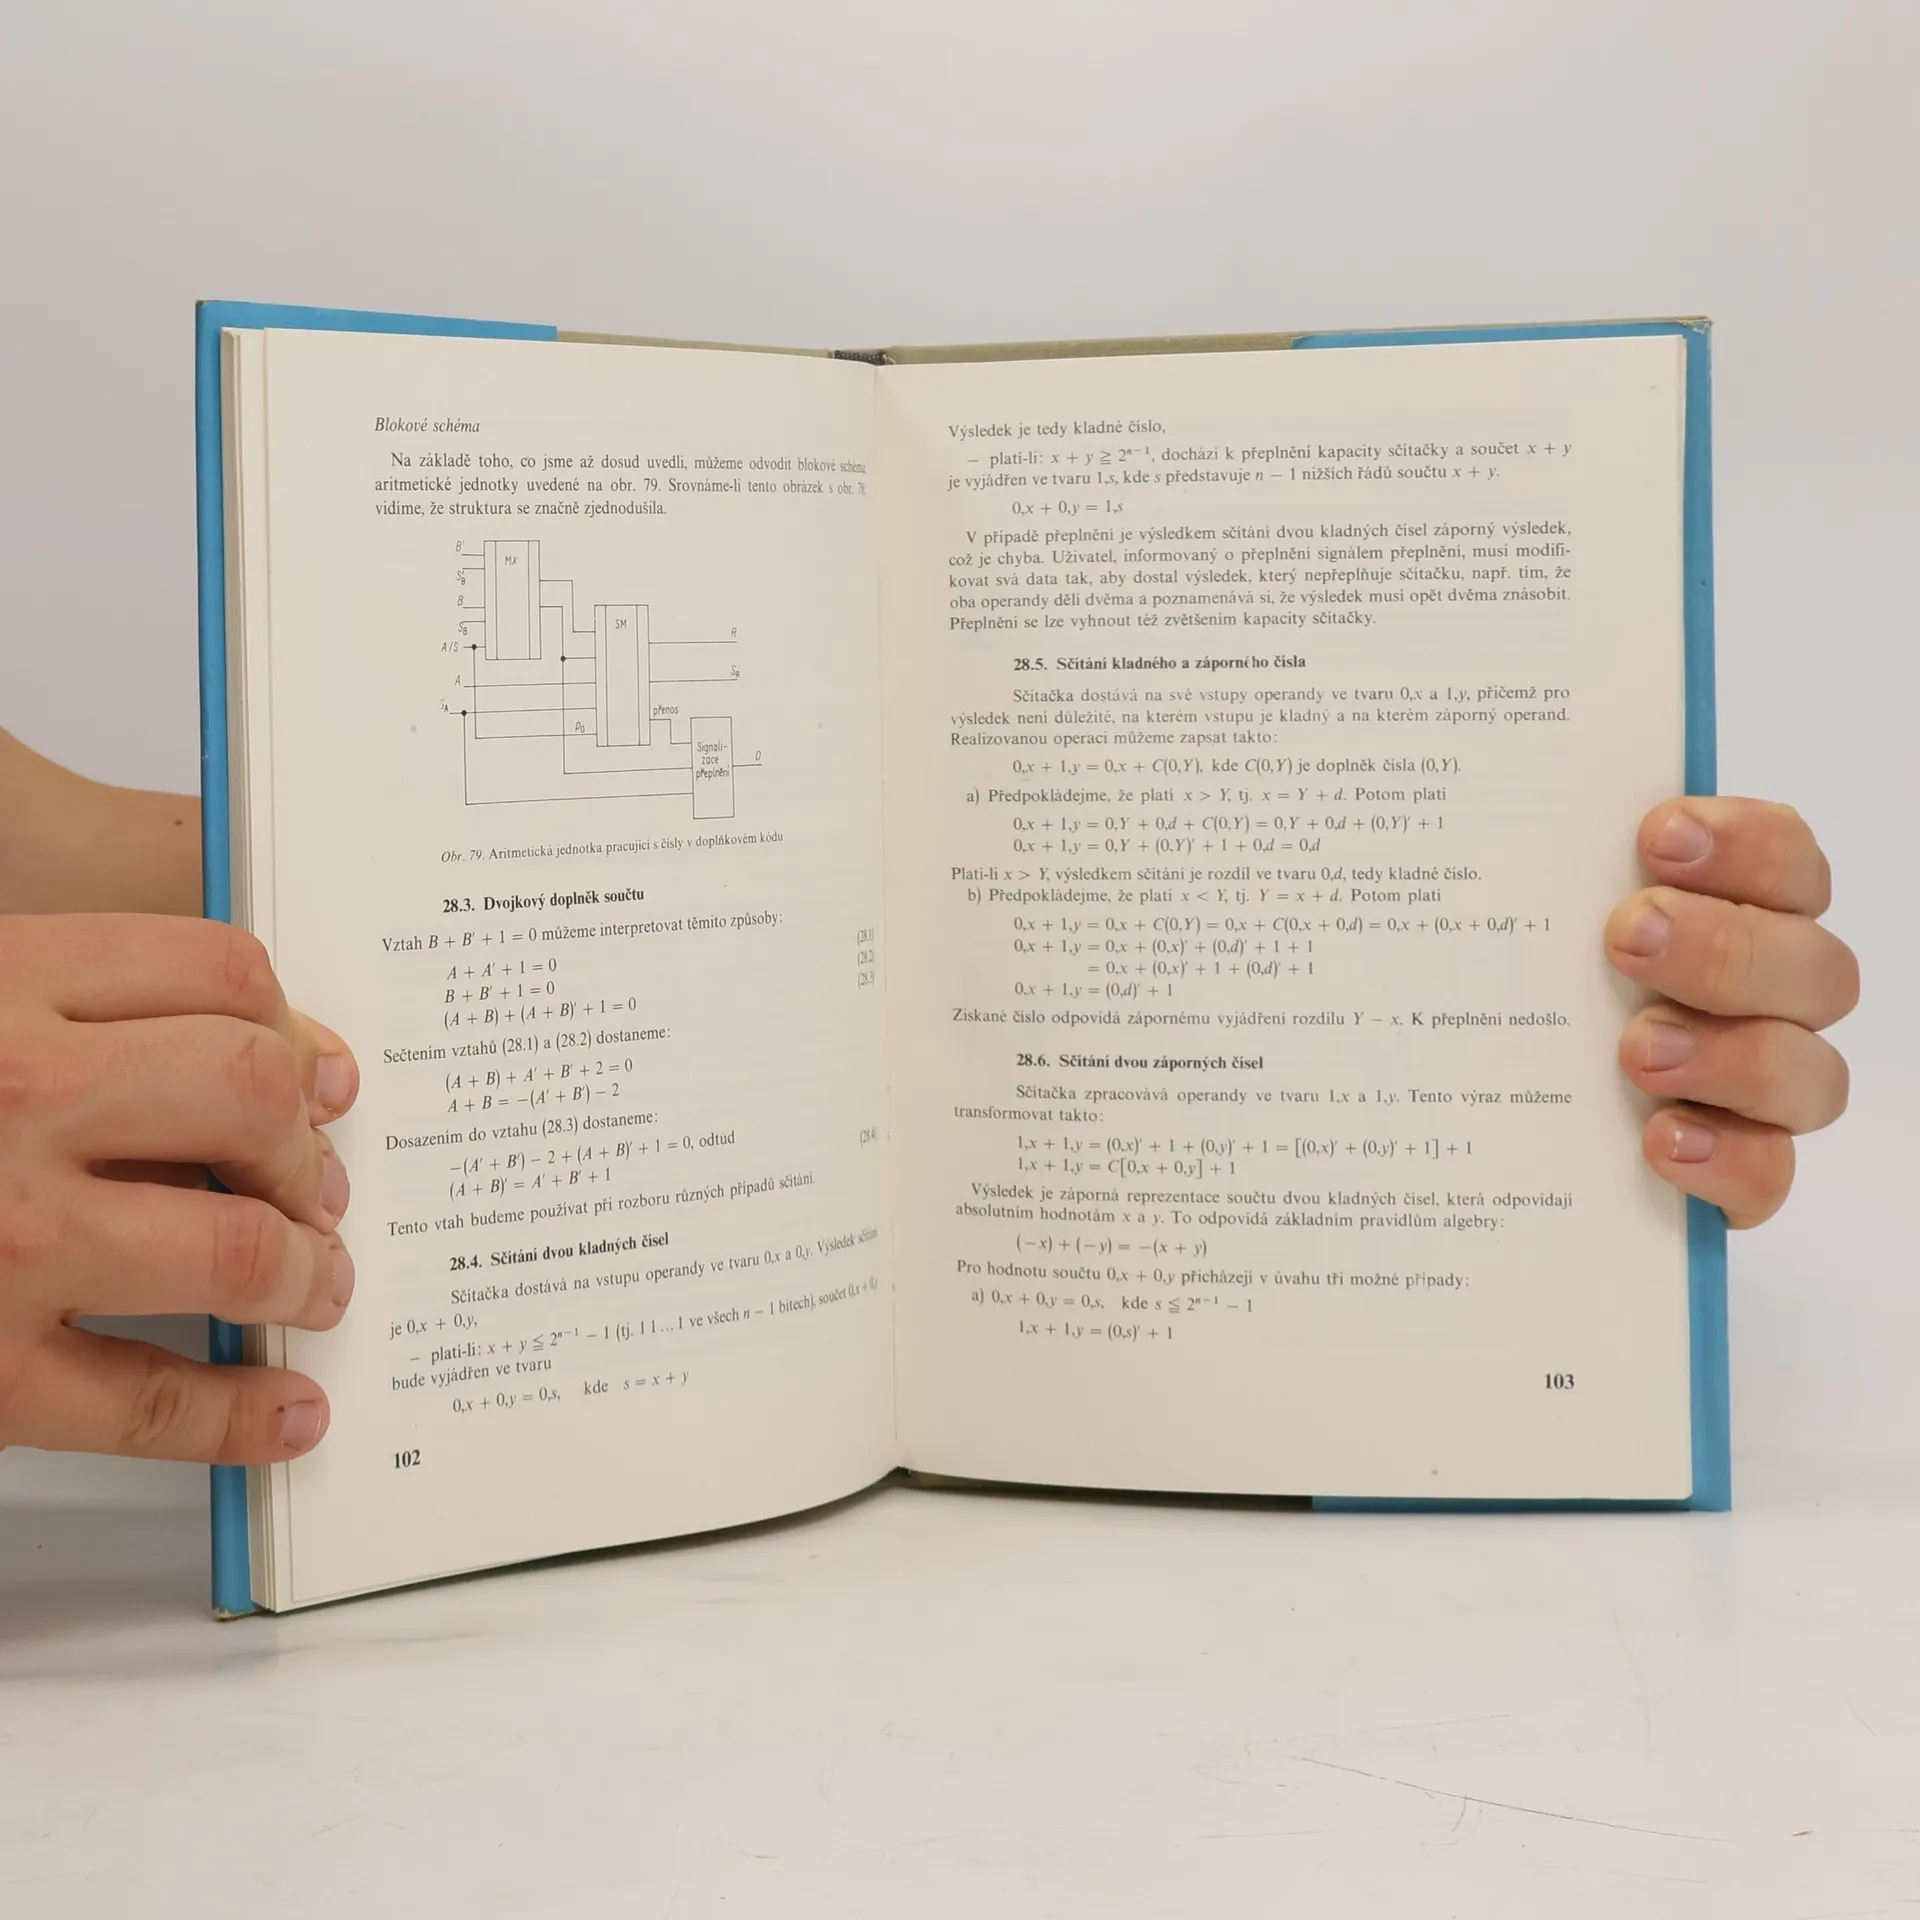 Blokové schéma
Na základě toho, co jsme až dosud uvedli, můžeme odvodit blokové schéma
aritmetické jednotky uvedené na obr. 79. Srovnáme-li tento obrázek s obr. 78,
vidíme, že struktura se značně zjednodušila.
B'
MX
S'B
B
SB
SM
A/S
R
A
SR
SA
přenos
P0
Signali-
zace
přeplnění
D
Obr. 79. Aritmetická jednotka pracující s čísly v doplňkovém kódu
28.3. Dvojkový doplněk součtu
Vztah B + B' + 1 = 0 můžeme interpretovat těmito způsoby:
A + A' + 1 = 0 (28.1)
B + B' + 1 = 0 (28.2)
(A + B) + (A + B)' + 1 = 0 (28.3)
Sečtením vztahů (28.1) a (28.2) dostaneme:
(A + B) + A' + B' + 2 = 0
A + B = −(A' + B') − 2
Dosazením do vztahu (28.3) dostaneme:
−(A' + B') − 2 + (A + B)' + 1 = 0, odtud
(A + B)' = A' + B' + 1 (28.4)
Tento vtah budeme používat při rozboru různých případů sčítání.
28.4. Sčítání dvou kladných čísel
Sčítačka dostává na vstupu operandy ve tvaru 0,x a 0,y. Výsledek sčítání
je 0,x + 0,y,
− platí-li: x + y ≦ 2ⁿ⁻¹ − 1 (tj. 1 1 ... 1 ve všech n − 1 bitech), součet 0,x + 0,y
bude vyjádřen ve tvaru
0,x + 0,y = 0,s, kde s = x + y
102
Výsledek je tedy kladné číslo,
− platí-li: x + y ≧ 2ⁿ⁻¹, dochází k přeplnění kapacity sčítačky a součet x + y
je vyjádřen ve tvaru 1,s, kde s představuje n − 1 nižších řádů součtu x + y.
0,x + 0,y = 1,s
V případě přeplnění je výsledkem sčítání dvou kladných čísel záporný výsledek,
což je chyba. Uživatel, informovaný o přeplnění signálem přeplnění, musí modifi-
kovat svá data tak, aby dostal výsledek, který nepřeplňuje sčítačku, např. tím, že
oba operandy dělí dvěma a poznamenává si, že výsledek musí opět dvěma znásobit.
Přeplnění se lze vyhnout též zvětšením kapacity sčítačky.
28.5. Sčítání kladného a záporného čísla
Sčítačka dostává na své vstupy operandy ve tvaru 0,x a 1,y, přičemž pro
výsledek není důležité, na kterém vstupu je kladný a na kterém záporný operand.
Realizovanou operaci můžeme zapsat takto:
0,x + 1,y = 0,x + C(0,Y), kde C(0,Y) je doplněk čísla (0,Y).
a) Předpokládejme, že platí x > Y, tj. x = Y + d. Potom platí
0,x + 1,y = 0,Y + 0,d + C(0,Y) = 0,Y + 0,d + (0,Y)' + 1
0,x + 1,y = 0,Y + (0,Y)' + 1 + 0,d = 0,d
Platí-li x > Y, výsledkem sčítání je rozdíl ve tvaru 0,d, tedy kladné číslo.
b) Předpokládejme, že platí x < Y, tj. Y = x + d. Potom platí
0,x + 1,y = 0,x + C(0,Y) = 0,x + C(0,x + 0,d) = 0,x + (0,x + 0,d)' + 1
0,x + 1,y = 0,x + (0,x)' + (0,d)' + 1 + 1
= 0,x + (0,x)' + 1 + (0,d)' + 1
0,x + 1,y = (0,d)' + 1
Získané číslo odpovídá zápornému vyjádření rozdílu Y − x. K přeplnění nedošlo.
28.6. Sčítání dvou záporných čísel
Sčítačka zpracovává operandy ve tvaru 1,x a 1,y. Tento výraz můžeme
transformovat takto:
1,x + 1,y = (0,x)' + 1 + (0,y)' + 1 = [(0,x)' + (0,y)' + 1] + 1
1,x + 1,y = C[0,x + 0,y] + 1
Výsledek je záporná reprezentace součtu dvou kladných čísel, která odpovídají
absolutním hodnotám x a y. To odpovídá základním pravidlům algebry:
(−x) + (−y) = −(x + y)
Pro hodnotu součtu 0,x + 0,y přicházejí v úvahu tři možné případy:
a) 0,x + 0,y = 0,s, kde s ≦ 2ⁿ⁻¹ − 1
1,x + 1,y = (0,s)' + 1
103